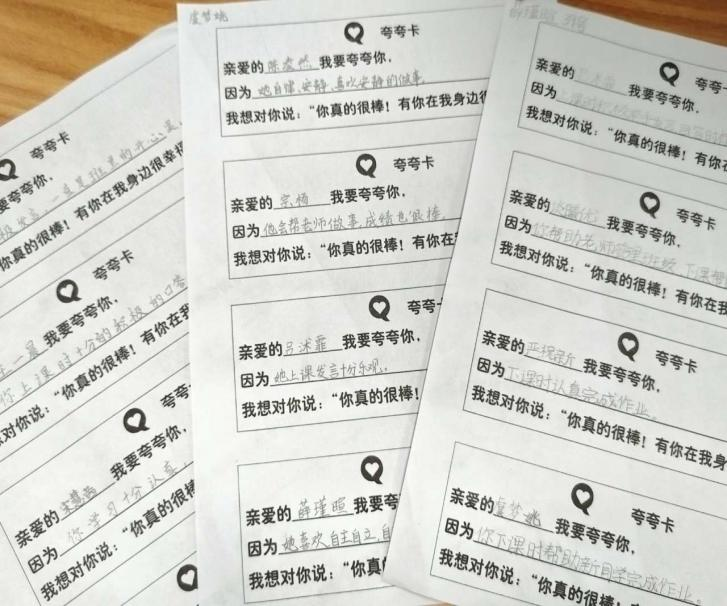 夸夸卡
要夸夸你,
你真的很棒!有你在我身边很幸福
夸夸卡
我要夸夸你,
你上课时十分的积极
想对你说:“你真的很棒!有你在我
夸夸
亲爱的 我要夸夸你,
因为 你学习十分认真
我想对你说:“你真的很棒
虞梦姚
夸夸卡
亲爱的 我要夸夸你,
因为 她自律,安静,喜欢安静的做事
我想对你说:“你真的很棒!有你在我身边很
夸夸卡
亲爱的 宗杨 我要夸夸你,
因为 他会帮老师做事,成绩也很棒
我想对你说:“你真的很棒!有你在
夸夸卡
亲爱的 吕沭霏 我要夸夸你,
因为 她上课发言十分乐观。
我想对你说:“你真的很棒!
亲爱的 薛瑾熙 我要夸
因为 她喜欢自主自立,自
我想对你说:“你真
薛瑾熙
夸夸
亲爱的 我要夸夸你,
因为
我想对你说:“你真的很棒!有你在
夸夸卡
亲爱的 我要夸夸你,
因为 你帮助老师管理班级,下课
我想对你说:“你真的很棒!有你在我
夸夸卡
亲爱的 我要夸夸你,
因为 下课时认真完成作业。
我想对你说:“你真的很棒!有你在我身
夸夸卡
亲爱的 虞梦姚 我要夸夸你,
因为 你下课时帮助新同学完成作业。
我想对你说:“你真的很棒!有你在